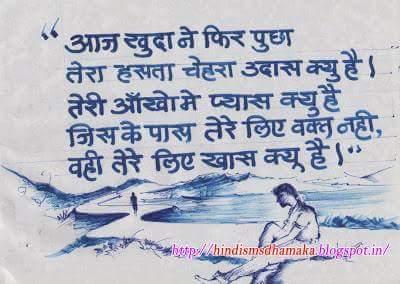 “ आज खुदा ने फिर पुछा
तेरा हसता चेहरा उदास क्यु है।
तेरी आँखो मे प्यास क्यु है
जिस के पास तेरे लिए वक्त नही,
वही तेरे लिए खास क्यू है।”
http://hindismsdhamaka.blogspot.in/